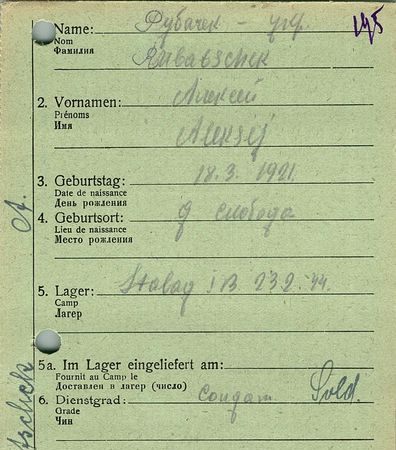 Name: Рубачек –
Nom
Фамилия
Rubatschek
2. Vornamen: Алексей
Prénoms
Имя
Aleksej
3. Geburtstag: 18.3. 1921.
Date de naissance
День рождения
4. Geburtsort: д слобода
Lieu de naissance
Место рождения
5. Lager: Stalag 23 2. 44.
Camp
Лагер
5a. Im Lager eingeliefert am:
Fournit au Camp le
Доставлен в лагер (число)
6. Dienstgrad: Солдат Sold.
Grade
Чин
A.